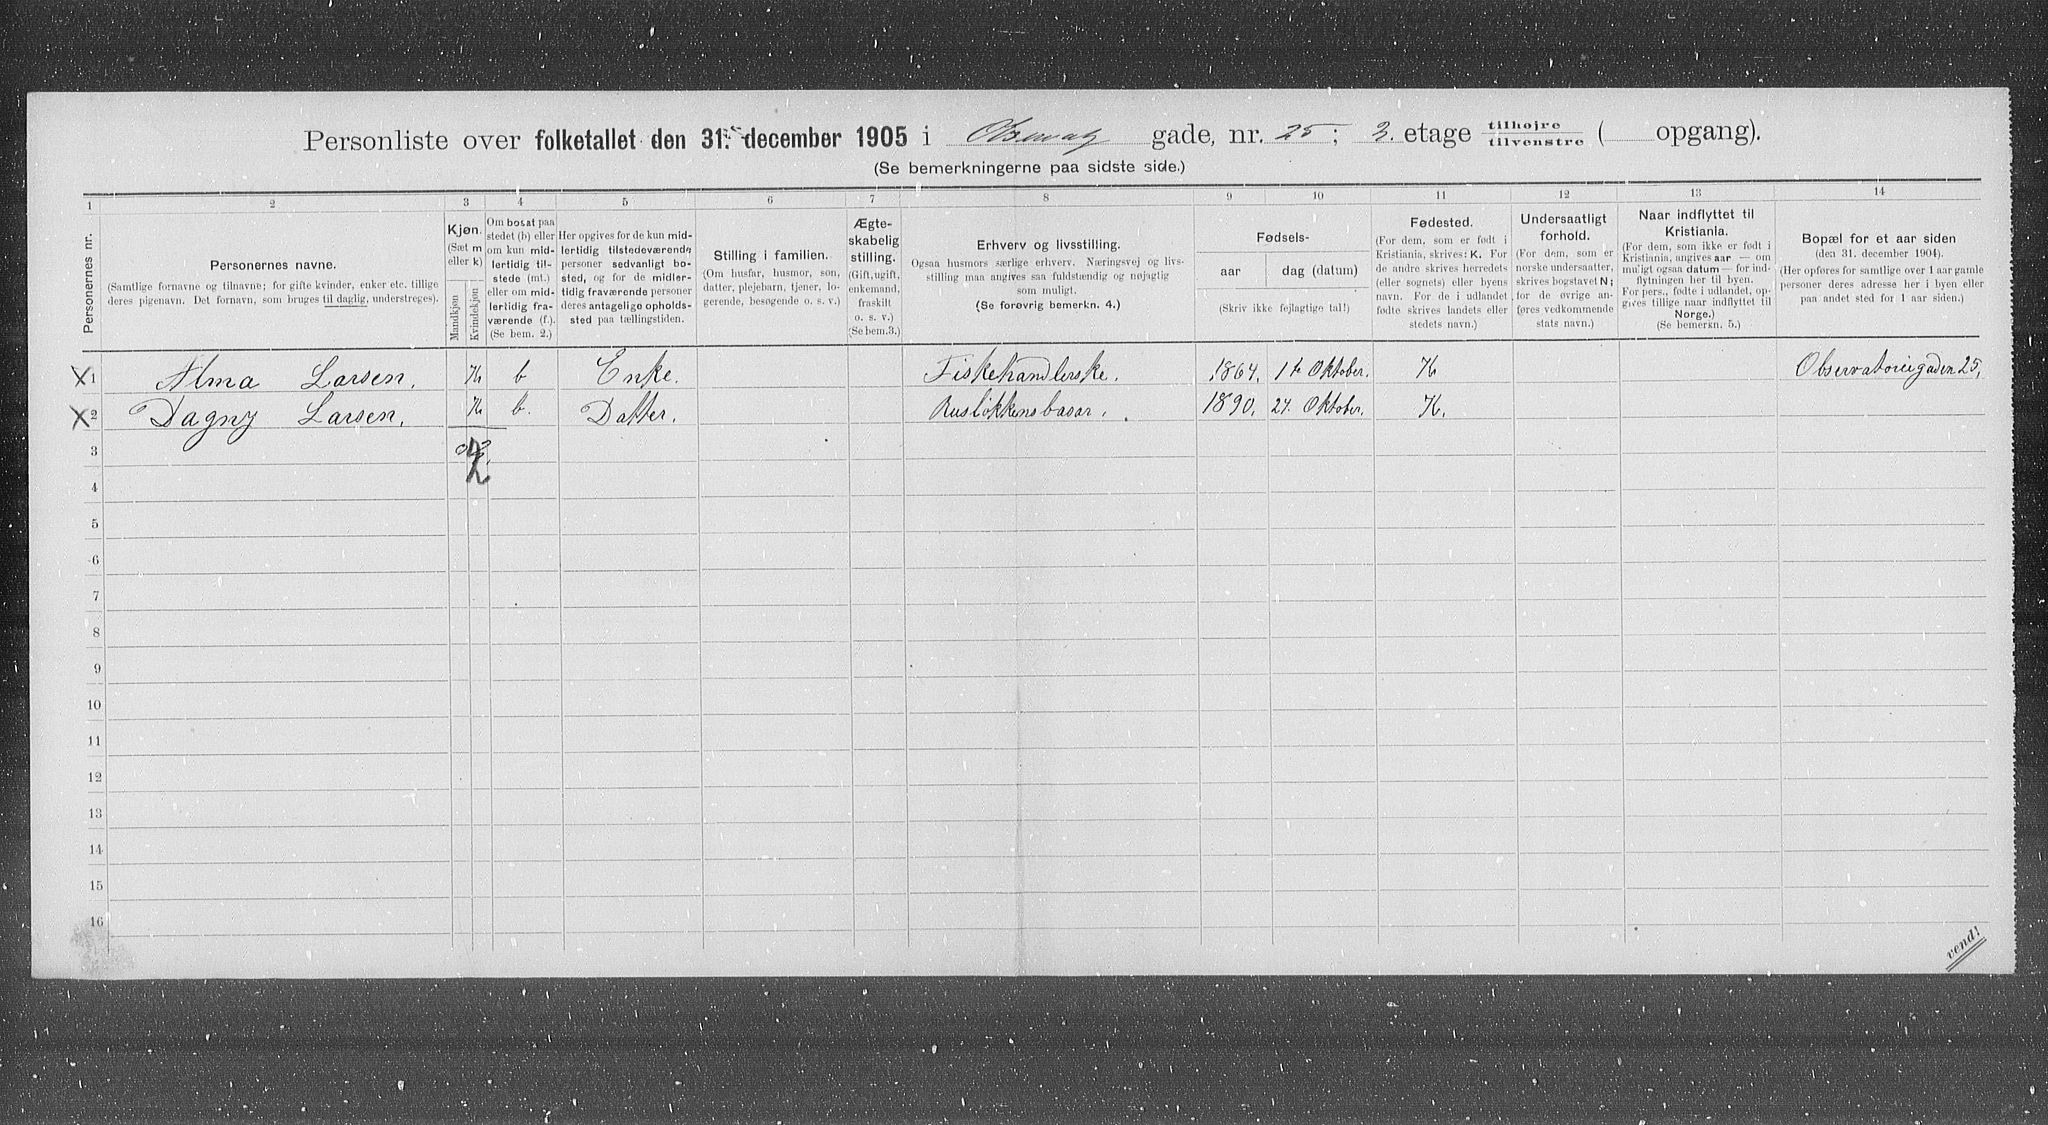 Personliste over folketallet den 31. december 1905 i Observat gade, nr. 25; 3. etage tilhøjre / tilvenstre ( opgang).
(Se bemerkningerne paa sidste side.)
1 2 3 4 5 6 7 8 9 10 11 12 13 14
Personernes nr.
Personernes navne.
(Samtlige fornavne og tilnavne; for gifte kvinder, enker etc. tillige
deres pigenavn. Det fornavn, som bruges til daglig, understreges).
Kjøn.
(Sæt m
eller k)
Mandkjøn
Kvindekjøn
Om bosat paa
stedet (b) eller
om kun mid-
lertidig til-
stede (mt.)
eller om mid-
lertidig fra-
værende (f.).
(Se bem. 2.)
Her opgives for de kun mid-
lertidig tilstedeværende
personer sedvanligt bo-
sted, og for de midler-
tidig fraværende personer
deres antagelige opholds-
sted paa tællingstiden.
Stilling i familien.
(Om husfar, husmor, søn,
datter, plejebarn, tjener, lo-
gerende, besøgende o. s. v.)
Ægte-
skabelig
stilling.
(Gift, ugift,
enkemand,
fraskilt
o. s. v.)
(Se bem.3.)
Erhverv og livsstilling.
Ogsaa husmors særlige erhverv. Næringsvej og livs-
stilling maa angives saa fuldstændig og nøjagtig
som muligt.
(Se forøvrig bemerkn. 4.)
Fødsels-
aar
dag (datum)
(Skriv ikke fejlagtige tal!)
Fødested.
(For dem, som er født i
Kristiania, skrives: K. For
de andre skrives herredets
(eller sognets) eller byens
navn. For de i udlandet
fødte skrives landets eller
stedets navn.)
Undersaatligt
forhold.
(For dem, som er
norske undersaatter,
skrives bogstavet N;
for de øvrige an-
føres vedkommende
stats navn.)
Naar indflyttet til
Kristiania.
(For dem, som ikke er født i
Kristiania, angives aar — om
muligt ogsaa datum — for ind-
flytningen her til byen.
For pers., fødte i udlandet, op-
gives tillige naar indflyttet til
Norge.)
(Se bemerkn. 5.)
Bopæl for et aar siden
(den 31. december 1904).
(Her opføres for samtlige over 1 aar gamle
personer deres adresse her i byen eller
paa andet sted for 1 aar siden.)
X 1 Alma Larsen. K b Enke. Fiskehandlerske. 1864. 1te Oktober. K Observatoriegaden 25,
X 2 Dagny Larsen. K b. Datter. Rusløkkensbasar. 1890. 27. Oktober. K.
3
2
4
5
6
7
8
9
10
11
12
13
14
15
16
vend!